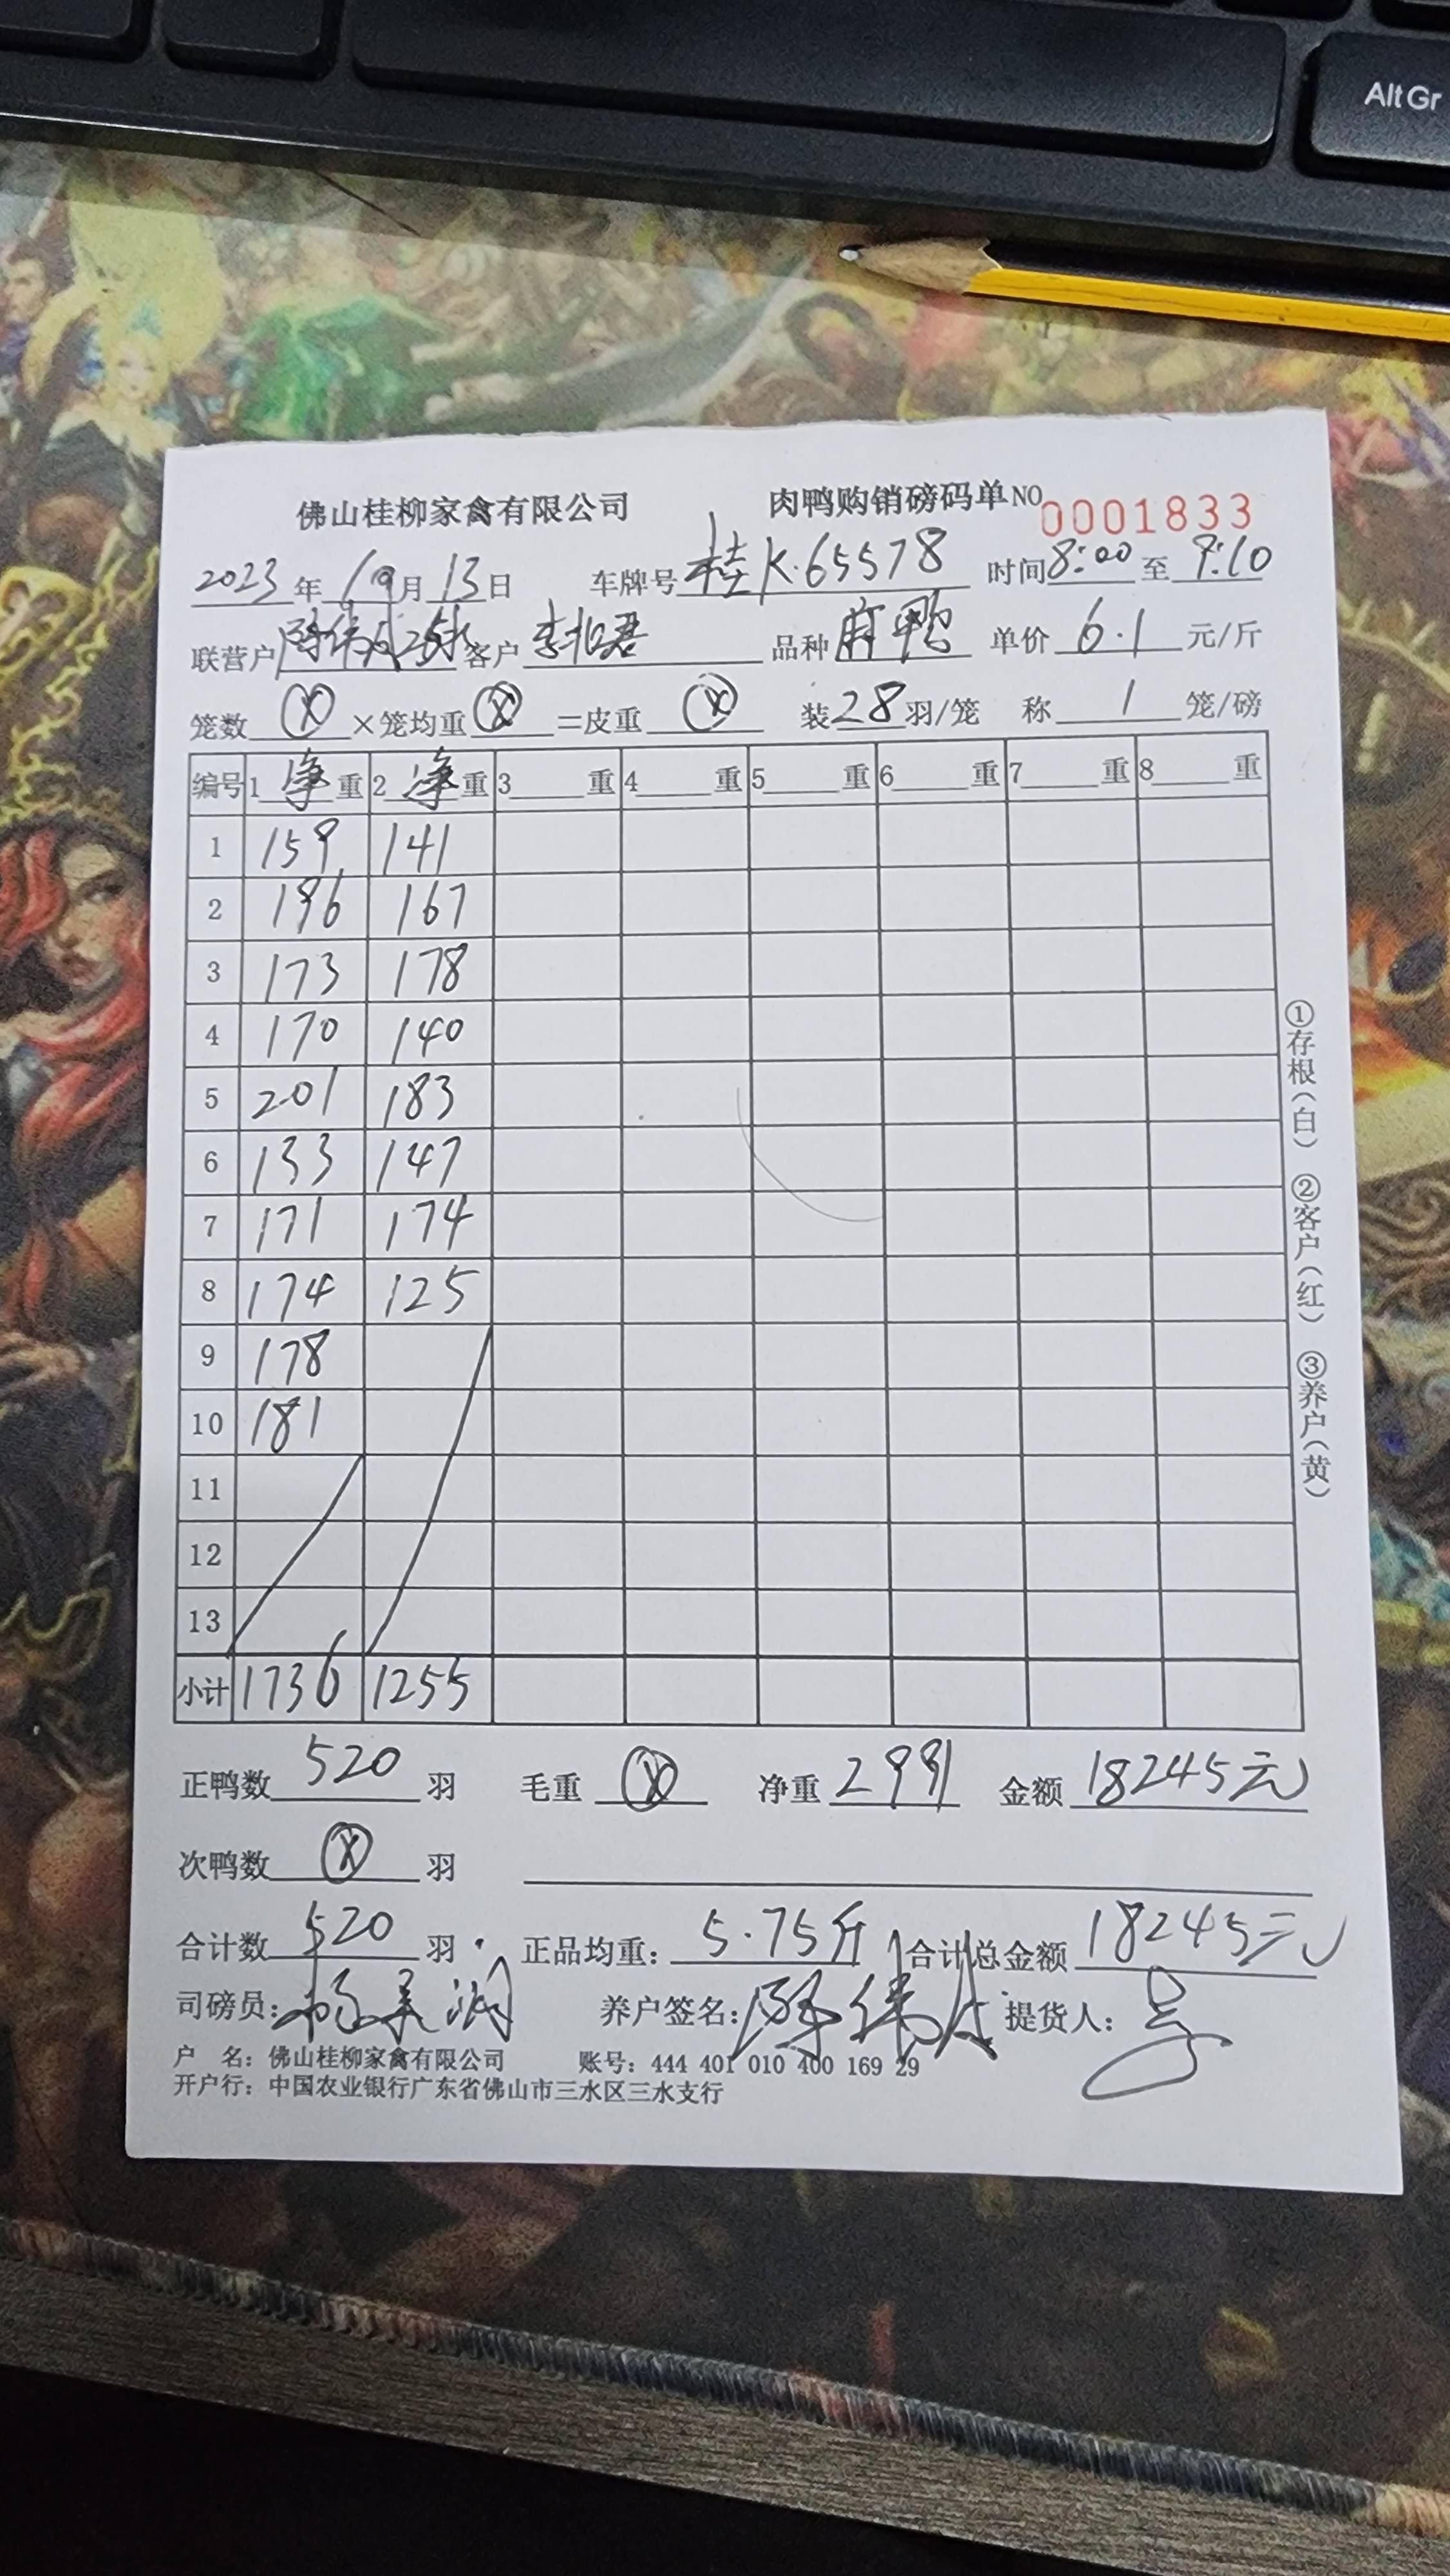 AltGr
佛山桂柳家禽有限公司 肉鸭购销磅码单NO 0001833
2023年10月13日 车牌号桂K·65578 时间8:00至9:10
联营户 客户李 品种麻鸭 单价6.1元/斤
笼数ⓧ×笼均重ⓧ=皮重ⓧ 装28羽/笼 称1笼/磅
编号 1净重 2净重 3重 4重 5重 6重 7重 8重
1 159 141
2 196 167
3 173 178
4 170 140
5 201 183
6 133 147
7 171 174
8 174 125
9 178
10 181
11
12
13
小计 1736 1255
正鸭数520羽 毛重ⓧ 净重2991 金额18245元
次鸭数ⓧ羽
合计数520羽 正品均重：5.75斤 合计总金额18245元
司磅员： 养户签名：陈伟 提货人：
户 名：佛山桂柳家禽有限公司 账号：444 401 010 400 169 29
开户行：中国农业银行广东省佛山市三水区三水支行
①存根（白） ②客户（红） ③养户（黄）